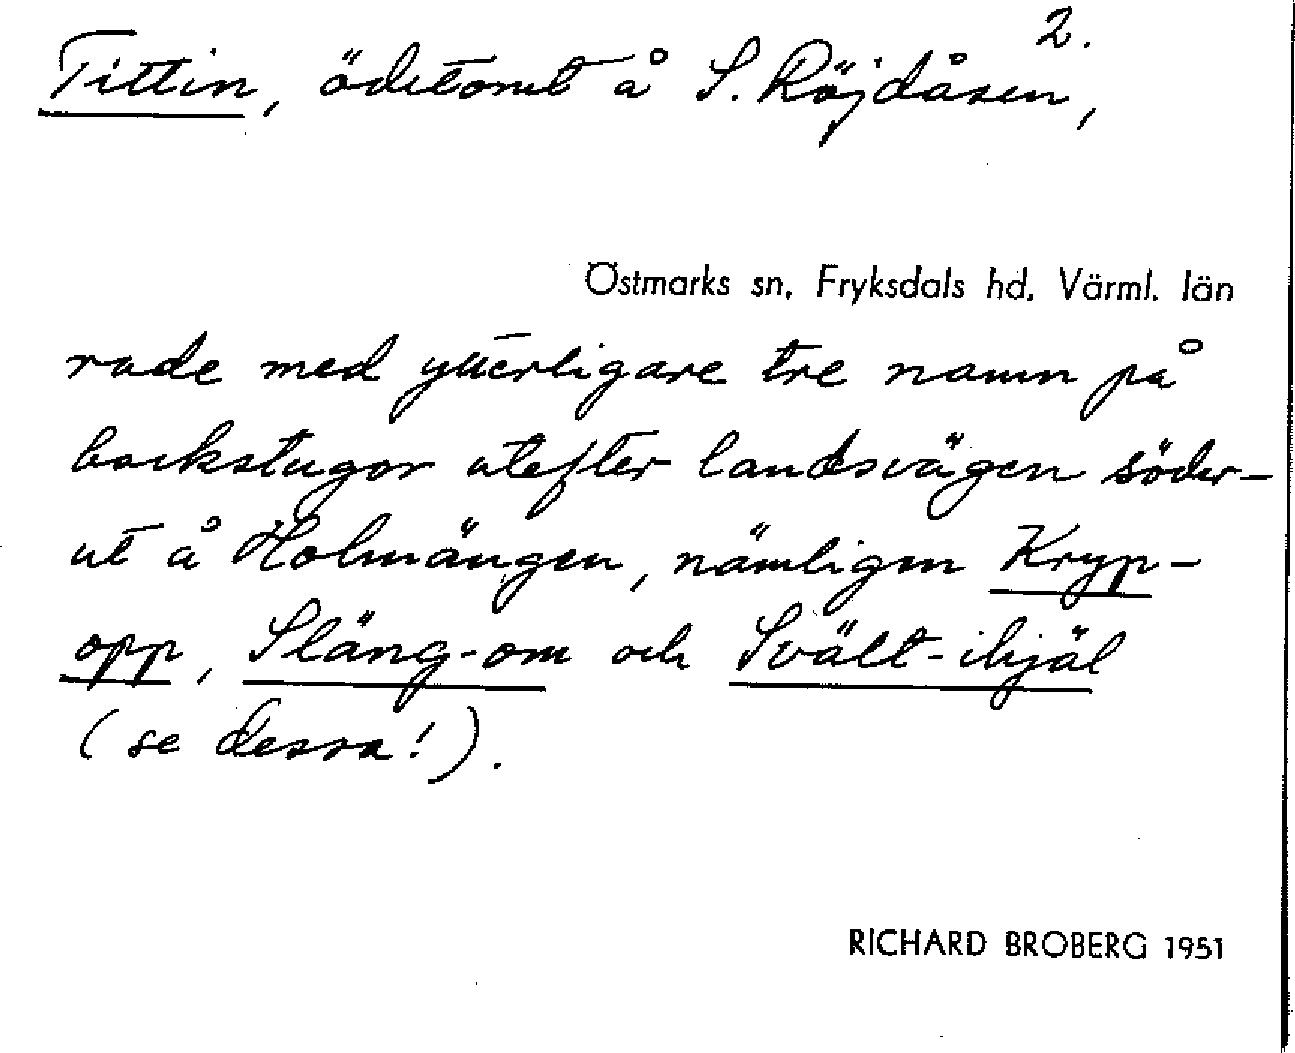 2.
Tittin, ödetomt å S. Röjdåsen,
Östmarks sn, Fryksdals hd, Värml. län
rade med ytterligare tre namn på
backstugor utefter landsvägen söder-
ut å Holmängen, nämligen Kryp-
opp, Släng-om och Svält-ihjäl
(se dessa!).
RICHARD BROBERG 1951